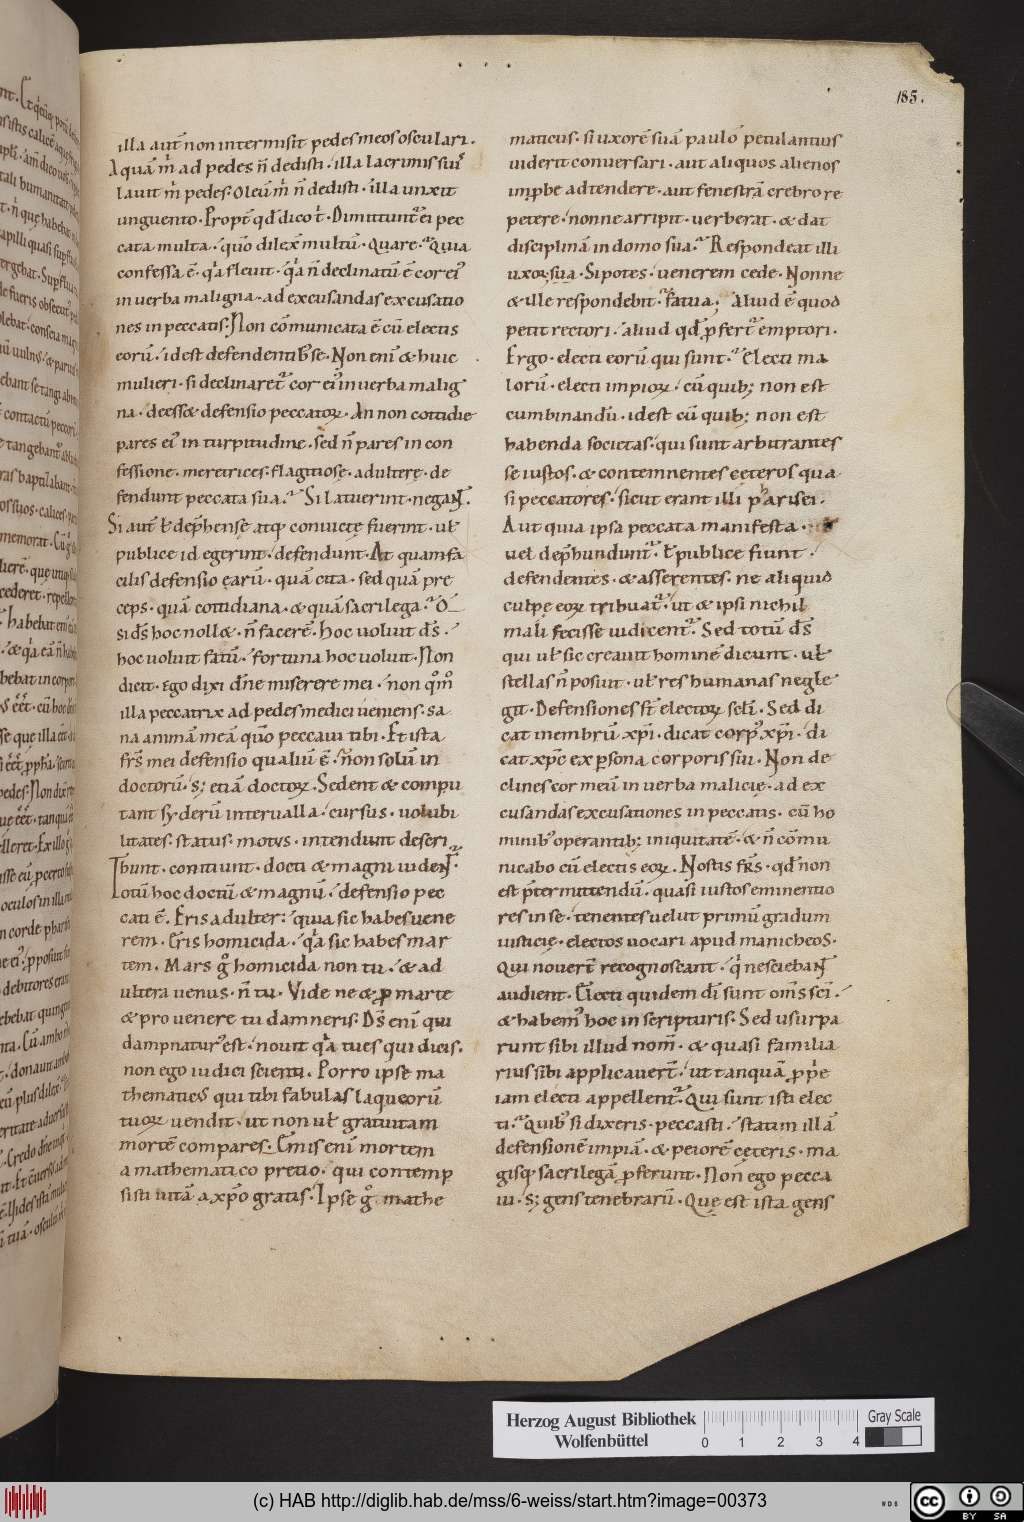 185.
illa aut̄ non intermisit pedes meos osculari.
Aquā m̓ ad pedes n̄ dedisti. illa lacrimis suiſ
lauit m̓ pedes. Oleū m̓ n̄ dedisti. illa unxit
unguento. Propt̄ qđ dico t̓. Dimittunt̄ ei pec
cata multa. qūo dilex̄ multū. Quare. Quia
confessa ē. q̓a fleuit. q̓a n̄ declinatū ē cor ei᾽
in uerba maligna. ad excusandas excusatio
nes in peccatis. Non cōmunicata ē cū electis
eorū. idest defendentib᾽ se. Non enī & huic
mulieri. si declinaret᾽ cor ei᾽ in uerba malig
na. deess& defensio peccatoꝝ. An non cottidie
pares ei᾽ in turpitudine. sed n̄ pares in con
fessione. meretrices. flagitiosę. adulterę. de
fendunt peccata sua. Si latuerint. negaNT.
Si aut̄ ł dep̄hensę atq; conuictę fuerint. uł
publice id egerint. defendunt. At quam fa
cilis defensio earū. quā cita. sed quā pre
ceps. quā cottidiana. & quā sacrilega. O
si dš hoc noll&. n̄ facerē. hoc uoluit dš.
hoc uoluit fatū. fortuna hoc uoluit. Non
dicit. ego dixi dn̄e miserere mei. non q̊m̄
illa peccatrix ad pedes medici ueniens. sa
na animā meā qūo peccaui tibi. Et ista
fr̄s mei defensio qualiū ē. n̄ non solū in
doctorū. s; etiā doctoꝝ. Sedent & compu
tant syderū interualla. cursus. uolubi
litates. status. motus. intendunt descri
bunt. conitiunt. docti & magni uideNT.
Totū hoc doctū & magnū. defensio pec
cati ē. Eris adulter. quia sic habes uene
rem. Eris homicida. q̓a sic habes mar
tem. Mars g̊ homicida non tu. & ad
ultera uenus. n̄ tu. Vide ne & ꝓ marte
& pro uenere tu damneris. Dš enī qui
dampnatur᾽ est. nouit q̓a tu es qui dicis.
non ego iudici scienti. Porro ipse ma
thematicus qui tibi fabulas laqueorū
tuoꝝ uendit. ut non uł gratuitam
mortē compares. Emis enī mortem
a mathematico pretio. qui contemp
sisti uitā a xp̄o gratis. Ipse g̊ mathe
maticus. si uxorē suā paulo petulantius
uiderit conuersari. aut aliquos alienos
inꝓbe adtendere. aut fenestrā crebro re
petere. nonne arripit. uerberat. & dat
disciplinā in domo sua. Respondeat illi
uxor sua. Si potes. uenerem cede. Nonne
& ille respondebit. fatua; Aliud ē quod
petit rectori. aliud qđ ꝓfert᾽ emptori.
Ergo. electi eorū qui sunt. Electi ma
lorū. electi impioꝝ. cū quib; non est
cumbinandū. idest cū quib; non est
habenda societas. qui sunt arbitrantes
se iustos. & contemnentes cęteros qua
si peccatores. sicut erant illi pharisei.
Aut quia ipsa peccata manifesta.
uel dep̄hundunt᾽. ł publice fiunt.
defendentes. & asserentes. ne aliquid
culpę eoꝝ tribuat᾽. ut & ipsi nichil
mali fecisse uidicent᾽. Sed totū dš
qui uł sic creauit hominē dicunt. uł
stellas n̄ posuit. uł res humanas negle
git. Defensiones st̄ electoꝝ sclī. Sed di
cat membrū xp̄i. dicat corp᾽ xp̄i. di
cat xp̄c ex ꝑsona corporis sui. Non de
clines cor meū in uerba malicię. ad ex
cusandas excusationes in peccatis. cū ho
minib᾽ operantib; iniquitatē. & n̄ cōmu
nicabo cū electis eoꝝ. Nostis fr̄s. qđ non
est p̄termittendū. quasi iustos eminentio
res in se. tenentes uelut primū gradum
iusticię. electos uocari apud manicheos.
Qui nouert̄ recognoscant. q̓ nesciebaNT
audient. Electi quidem dī sunt om̄s scī.
& habem᾽ hoc in scripturis. Sed usurpa
runt sibi illud nom̄. & quasi familia
rius sibi applicauert̄. ut tanquā ꝓp̓e
iam electi appellent᾽. Qui sunt isti elec
ti. Quib᾽ si dixeris. peccasti. statim illā
defensionē impiā. & peiorē cęteris. ma
gisq; sacrilegā ꝓferunt. Non ego pecca
ui. s; gens tenebrarū. Quę est ista gens
Herzog August Bibliothek
Wolfenbüttel
0 1 2 3 4
Gray Scale
(c) HAB http://diglib.hab.de/mss/6-weiss/start.htm?image=00373
cc BY SA